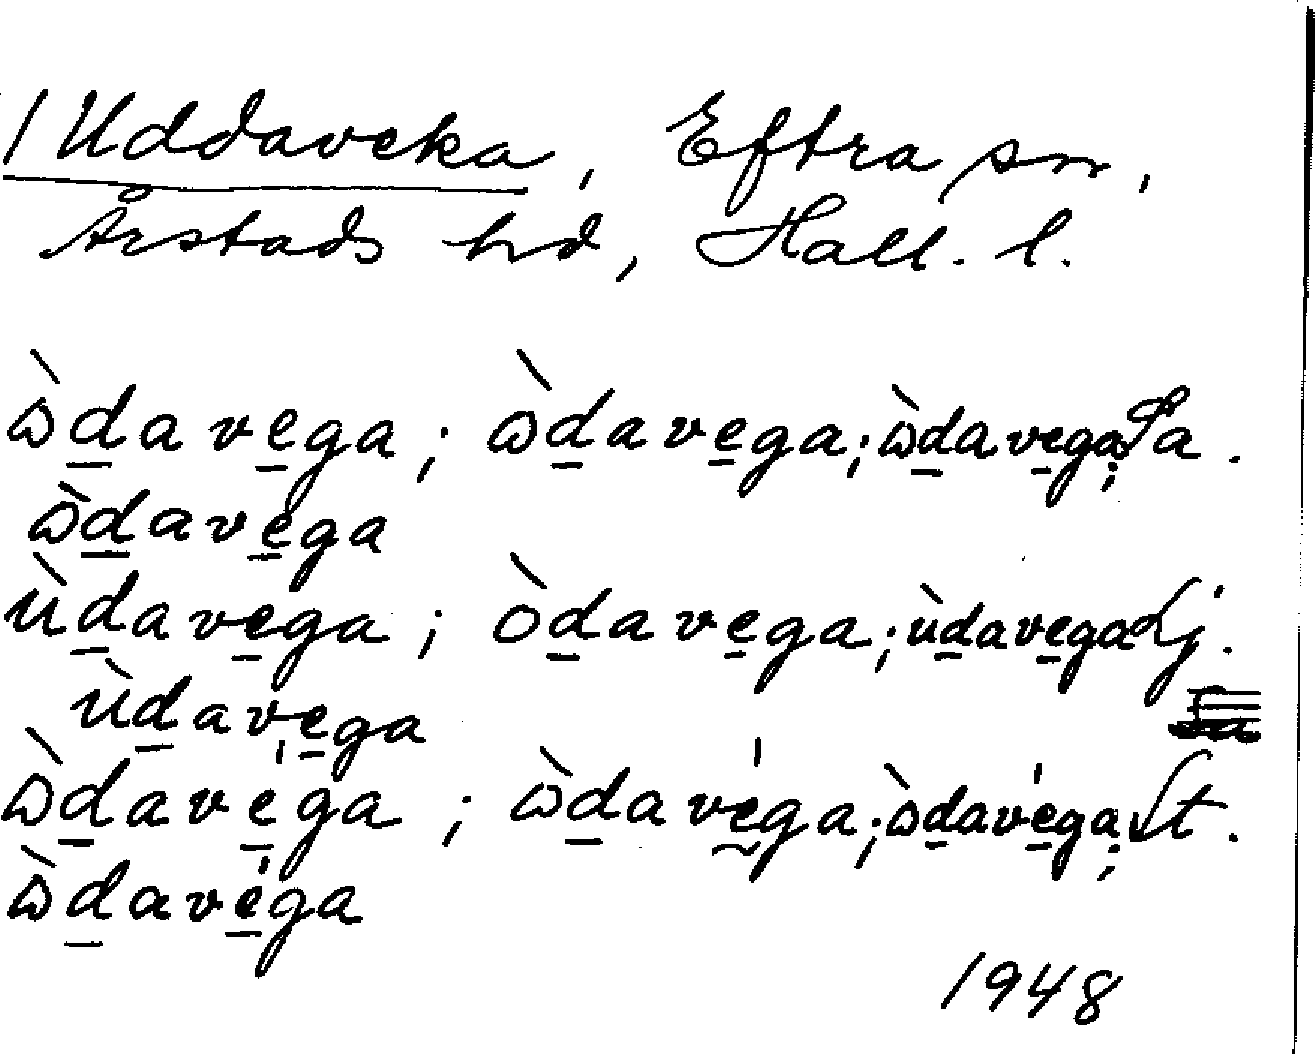 1 Uddaveka, Eftra sn,
Årstads hd, Hall. l.
ὼd̲ave̲ga; ὼd̲ave̲ga; ὼd̲ave̲ga; Sa.
ὼd̲ave̲ga
ùd̲ave̲ga; òd̲ave̲ga; ùd̲ave̲ga Lj.
ùd̲ave̲ga
ὼd̲ave̲ga; ὼd̲ave̲ga; ὼd̲ave̲ga; St.
ὼd̲ave̲ga
1948